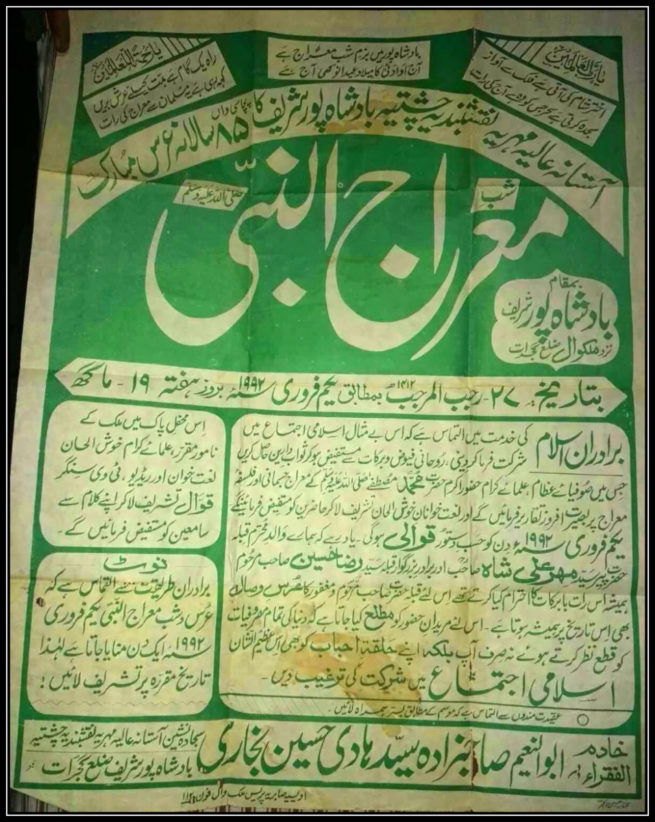 یا رب العالمین
بادشاہ پور میں بزم شب معراج ہے
آج آواز نئی کا میلاد عید انوکھی آج ہے
یا رحمۃ للعالمین
اختر شام کی آتی ہے فلک سے آواز
سجدہ کرتی ہے سحر جس کو وہ ہے آج کی رات
راہ یک گام ہے ہمت کیلئے عرش بریں
کہہ رہی ہے یہ مسلمان سے معراج کی رات
آستانہ عالیہ مہریہ نقشبندیہ چشتیہ بادشاہ پور شریف کا پچاسی واں ۸۵ سالانہ عرس مبارک
شب
معراج النبی
صلی اللہ علیہ وسلم
بمقام
بادشاہ پور شریف
نزد ملکوال ضلع گجرات
بتاریخ ۲۷۔ رجب المرجب ۱۴۱۲ھ بمطابق یکم فروری ۱۹۹۲ سنہ بروز ہفتہ ۱۹۔ ماگھ
برادران اسلام کی خدمت میں التماس ہے کہ اس بے مثال اسلامی اجتماع میں
شرکت فرما کر دینی، روحانی فیوض و برکات سے مستفیض ہو کر ثواب دارین حاصل کریں
جس میں صوفیائے عظام، علمائے کرام حضور اکرم حضرت محمد مصطفے صلی اللہ علیہ وسلم کے معراج جسمانی اور فلسفہ
معراج پر بصیرت افروز تقاریر فرمائیں گے اور نعت خوانان خوش الحان تشریف لا کر حاضرین کو مستفیض فرمائینگے
یکم فروری ۱۹۹۲ سنہ دن کو حسب دستور قوالی ہوگی۔ یاد رہے کہ ہمارے والد محترم قبلہ
حضرت پیر سید مہر علی شاہ صاحب اور برادر بزرگوار قبلہ سید رضا حسین صاحب مرحوم
ہمیشہ اس رات بابرکات کا احترام کیا کرتے تھے اس لئے قبلہ حضرت صاحب مرحوم و مغفور کا عرس و وصال
بھی اس تاریخ پر ہمیشہ ہوتا ہے۔ اس لئے مریدان حضور کو مطلع کیا جاتا ہے کہ دنیا کی تمام مصروفیات
کو قطع نظر کرتے ہوئے نہ صرف آپ بلکہ اپنے حلقۂ احباب کو بھی اس عظیم الشان
اسلامی اجتماع میں شرکت کی ترغیب دیں۔
عقیدت مندوں سے التماس ہے کہ موسم کے مطابق بستر ہمراہ لائیں۔
اس محفل پاک میں ملک کے
نامور مقرر علمائے کرام خوش الحان
نعت خوان اور ریڈیو، ٹی وی سنگر
قوال تشریف لا کر اپنے کلام سے
سامعین کو مستفیض فرمائیں گے۔
نوٹ
برادران طریقت سے التماس ہے کہ
عرس و شب معراج النبی یکم فروری
۱۹۹۲ء ایک دن منایا جاتا ہے لہٰذا
تاریخ مقررہ پر تشریف لائیں!
خادم الفقراء
ابوالنعیم صاحبزادہ سید ہادی حسین بخاری
سجادہ نشین آستانہ عالیہ مہریہ نقشبندیہ چشتیہ
بادشاہ پور شریف ضلع گجرات
پریس ملک وال فون